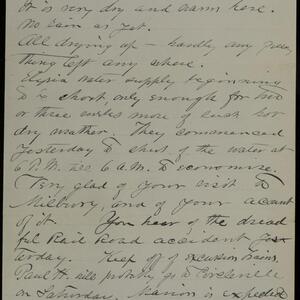 It is very dry and warm here.
No rain as yet.
All drying up - hardly any green
thing left any where.
Elyria water supply beginning
to be short, only enough for two
or three weeks more of such hot
dry weather. They commenced
yesterday to shut off the water at
6 P.M. till 6 A.M. to economize.
Very glad of your visit to
Milbury, and of your account
of it. You hear of the dread
ful Rail Road accident yes
terday. Keep off of excursion trains.
Paul H. will probably go to Circleville
on Saturday. Marion is expected